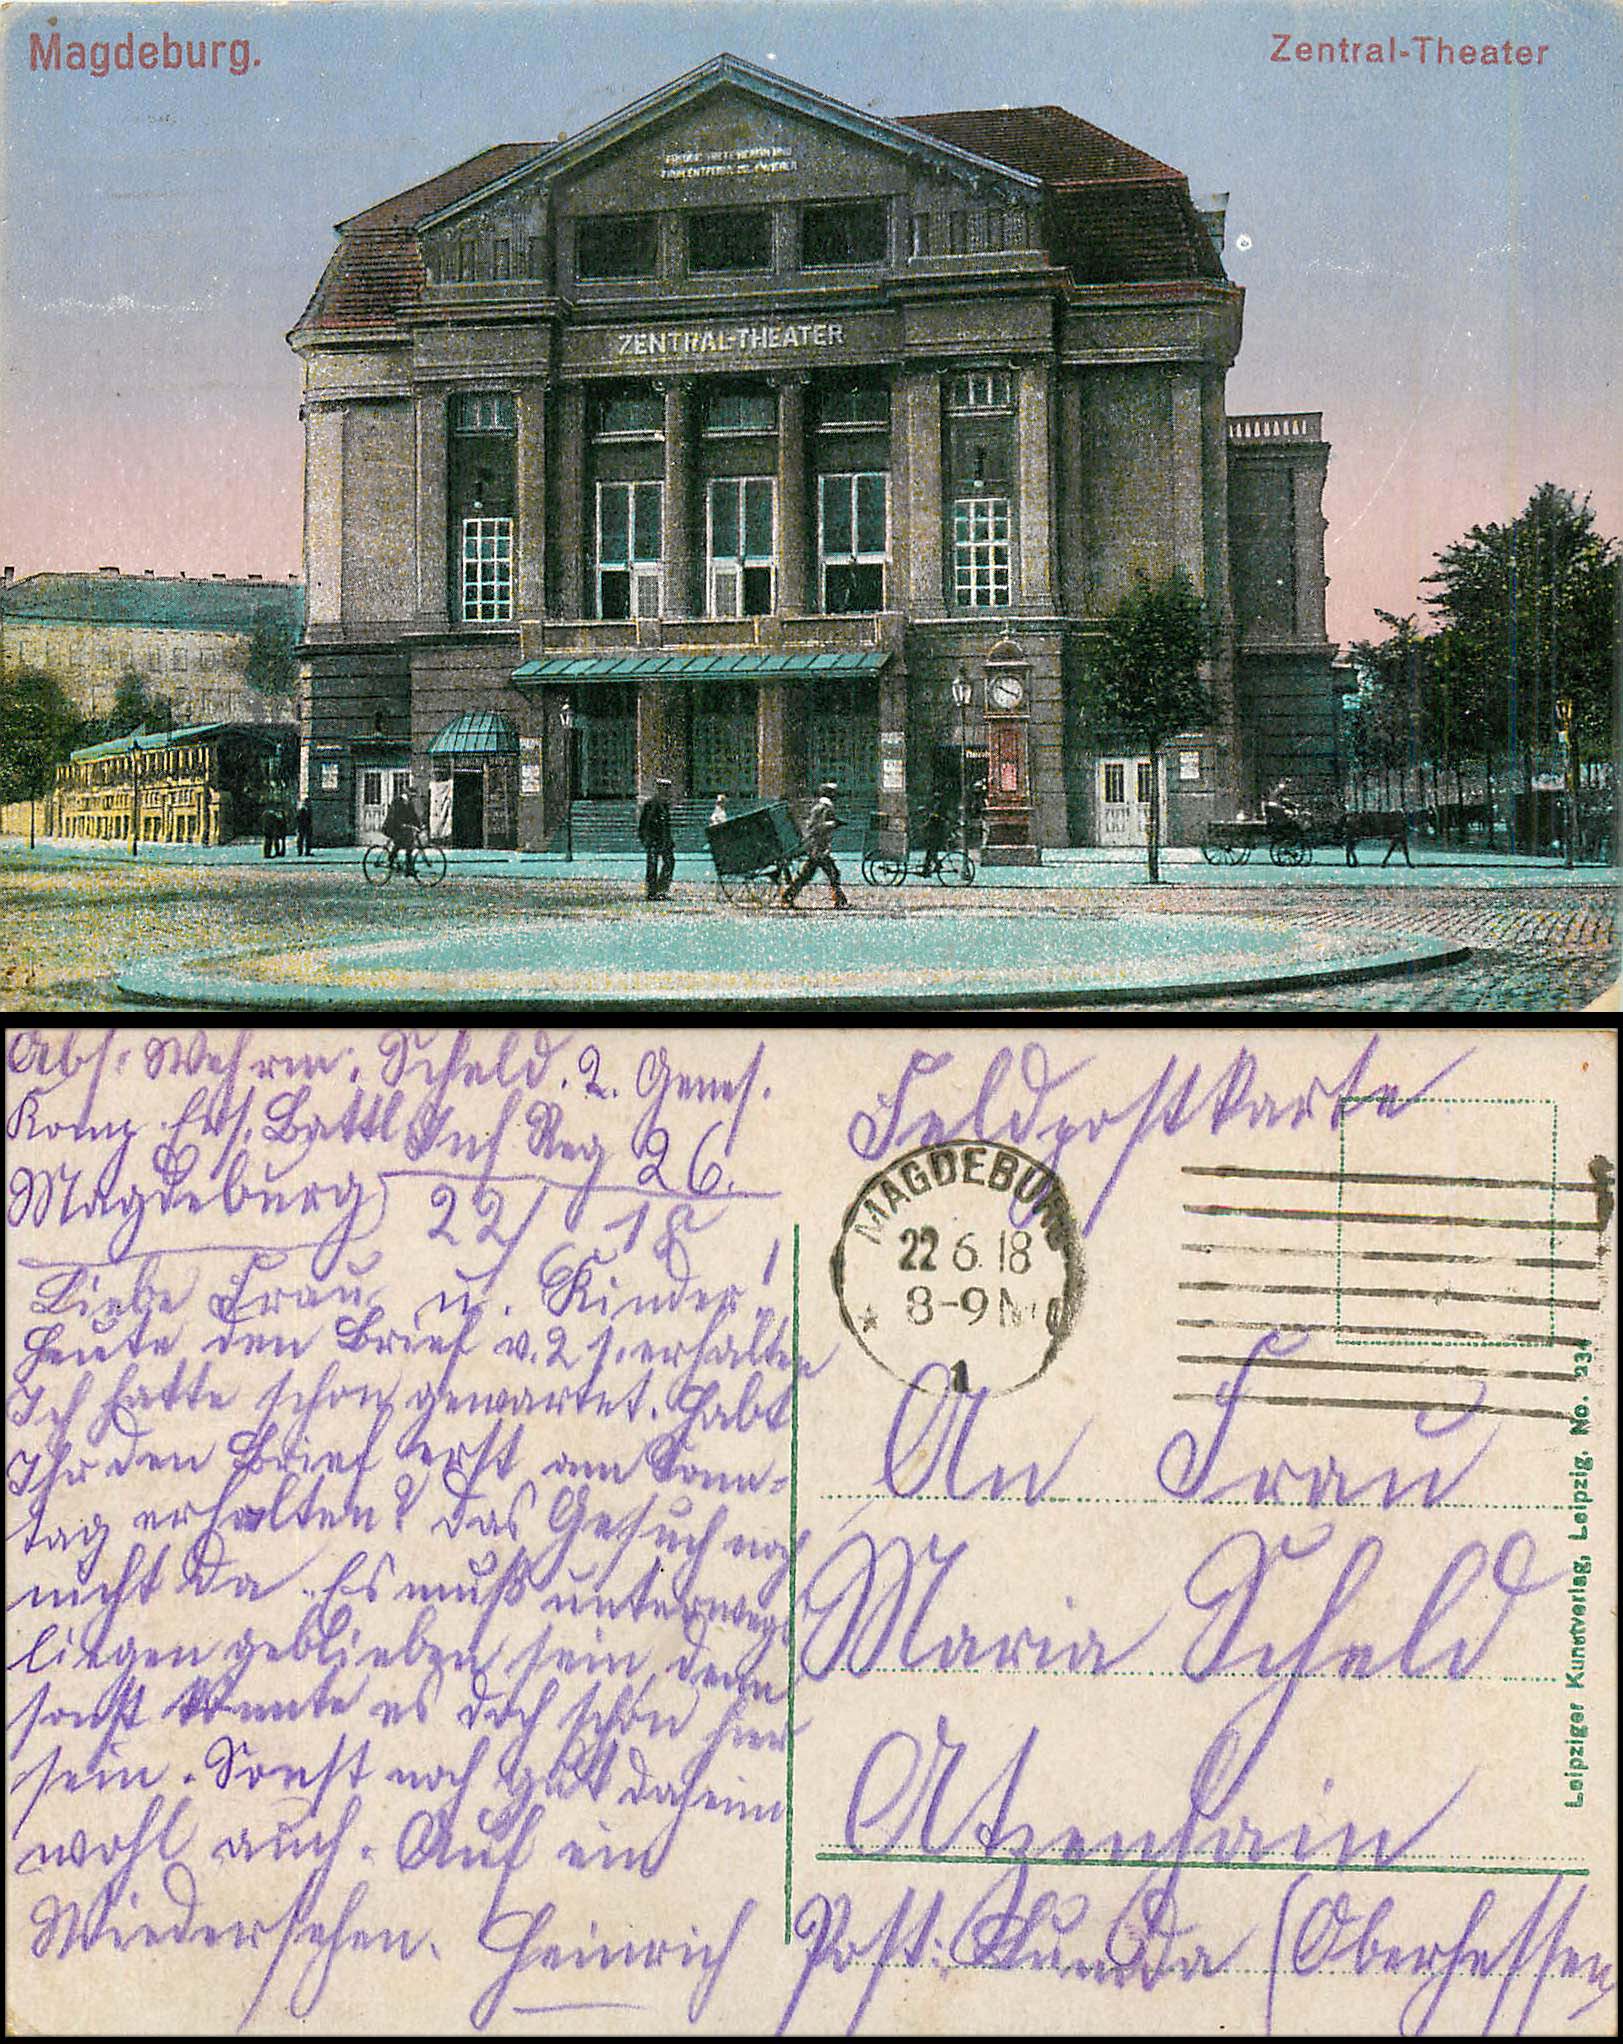 Magdeburg.
Zentral-Theater
ZENTRAL-THEATER
Abs: Wehrm: Scheld. 2. Genes.
Komp Ers. Battl Inf Reg 26.
Magdeburg 22/ 6 18
Liebe Frau u. Kinder!
Heute den Brief v. 2 s. erhalten
Ich hatte schon gewartet. Habt
Ihr den Brief erst am Sonn-
tag erhalten? Das Gesuch noch
nicht da. Es muß unterwegs
liegen geblieben sein, denn
sonst könnte es doch schon hier
sein. Sonst noch gut daheim
wohl auch. Auf ein
Wiedersehen. Heinrich
Feldpostkarte
MAGDEBURG
22 6. 18
8-9 N
* 1
An Frau
Maria Scheld
Atzenhain
Post: (Oberhessen
Leipziger Kunstverlag, Leipzig. No. 234